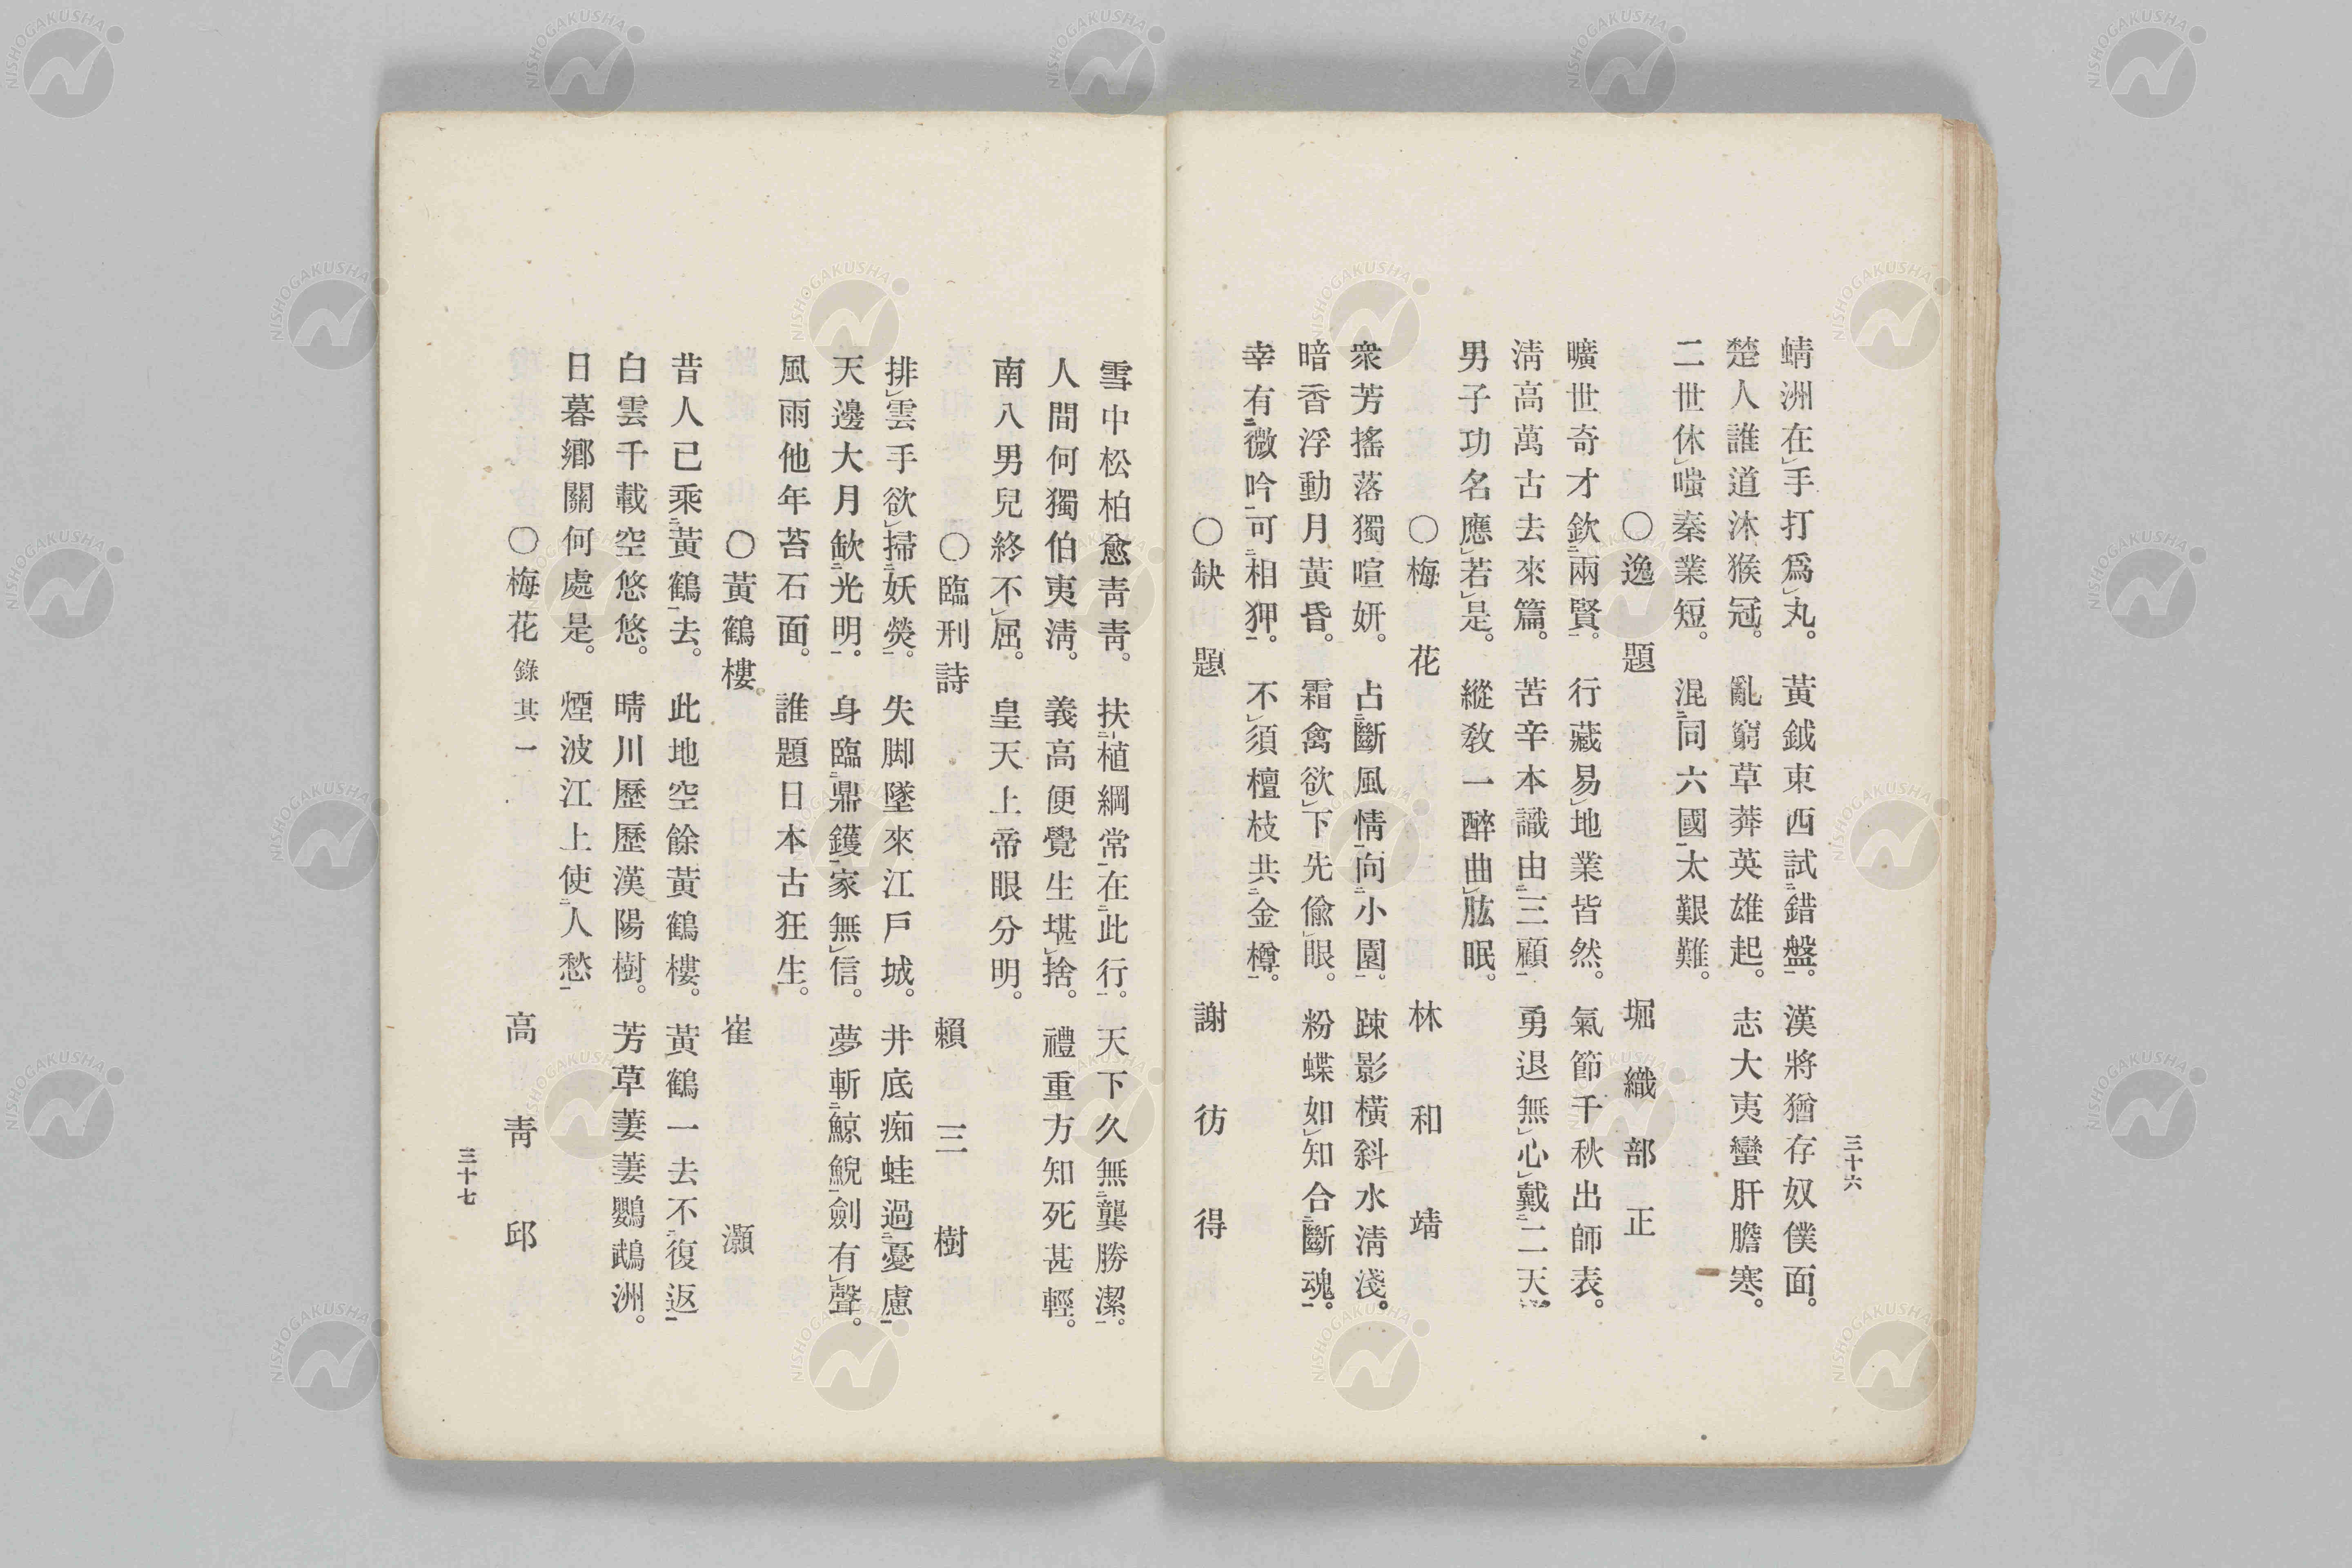 三十六
蜻洲在㆑手打爲㆑丸。黃鉞東西試㆓錯盤㆒。漢將猶存奴僕面。
楚人誰道沐猴冠。亂窮草莽英雄起。志大夷蠻肝膽寒。
二世休㆑嗤秦業短。混㆓同六國㆒太艱難。
〇逸題 堀織部正
曠世奇才欽㆓兩賢㆒。行藏易㆑地業皆然。氣節千秋出師表。
淸高萬古去來篇。苦辛本識由㆓三顧㆒勇退無㆑心㆑戴㆓二天㆒
男子功名應㆑若㆑是。縱敎一醉曲㆑肱眠。
〇梅花 林和靖
衆芳搖落獨喧妍。占㆓斷風情㆒向㆓小園㆒。踈影橫斜水淸淺。
暗香浮動月黃昏。霜禽欲㆑下先偸㆑眼。粉蝶如㆑知合㆓斷魂㆒。
幸有㆓微吟㆒可㆓相狎㆒。不㆑須檀枝共㆓金樽㆒。
〇缺題 謝彷得
雪中松柏愈靑靑。扶㆓植綱常㆒在㆓此行㆒。天下久無㆓龔勝潔㆒。
人間何獨伯夷淸。義高便覺生堪㆑捨。禮重方知死甚輕。
南八男兒終不㆑屈。皇天上帝眼分明。
〇臨刑詩 賴三樹
排㆑雲手欲㆑掃㆓妖熒㆒。失脚墜來江戶城。井底痴蛙過㆓憂慮㆒
天邊大月缺㆓光明㆒。身臨㆓鼎鑊㆒家無㆑信。夢斬㆓鯨鯢㆒劍有㆑聲。
風雨他年苔石面。誰題日本古狂生。
〇黃鶴樓 崔灝
昔人已乘㆓黃鶴㆒去。此地空餘黃鶴樓。黃鶴一去不㆓復返㆒
白雲千載空悠悠。晴川歷歷漢陽樹。芳草萋萋鸚鵡洲。
日暮鄕關何處是。煙波江上使㆓人愁㆒
〇梅花錄其一 高靑邱
三十七